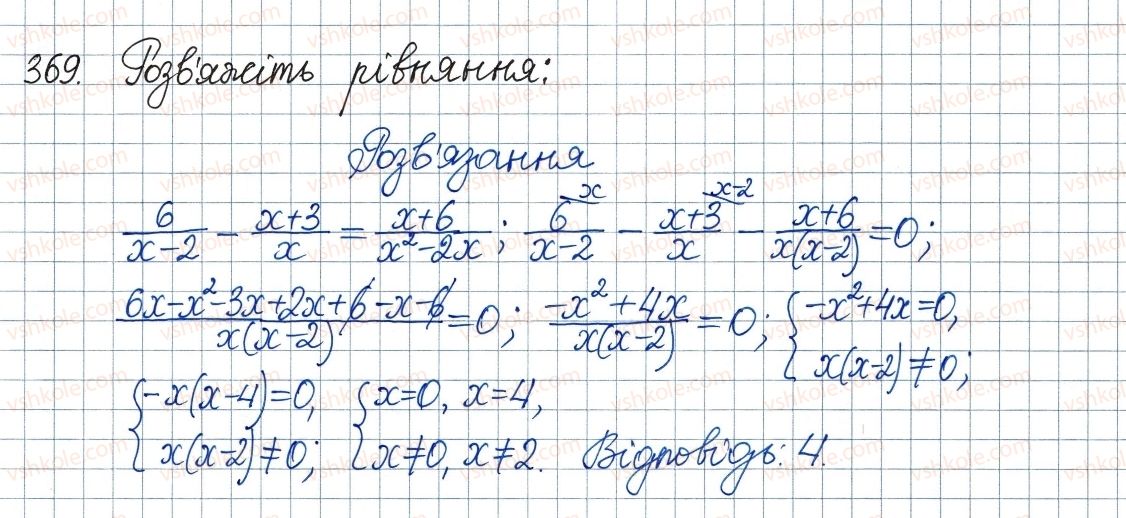 369. Розв'яжіть рівняння:
Розв'язання
6/(x-2) - (x+3)/x = (x+6)/(x²-2x); 6/(x-2) ^x - (x+3)/x ^(x-2) - (x+6)/(x(x-2)) = 0;
(6x-x²-3x+2x+6-x-6)/(x(x-2)) = 0; (-x²+4x)/(x(x-2)) = 0; { -x²+4x=0, x(x-2)≠0;
{ -x(x-4)=0, x(x-2)≠0; { x=0, x=4, x≠0, x≠2. Відповідь: 4.
vshkole.com